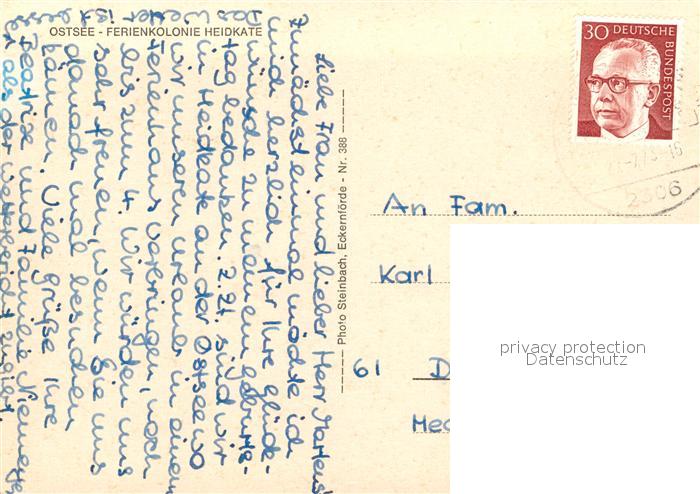 OSTSEE - FERIENKOLONIE HEIDKATE
Liebe Frau und lieber Herr Martens!
Zunächst einmal möchte ich
mich herzlich für Ihre Glück-
wünsche zu meinem Geburts-
tag bedanken. Z.Zt. sind wir
in Heidkate an der Ostsee wo
wir unseren Urlaub in einem
Ferienhaus verbringen, noch
bis zum 4. Wir würden uns
sehr freuen, wenn Sie uns
danach mal besuchen
kämen. Viele Grüße Ihre
Beatrize und Familie Niemeyer
Das Wetter ist besser
als der Wetterbericht zugibt.
Photo Steinbach, Eckernförde - Nr. 388
30 DEUTSCHE
BUNDESPOST
2306
An Fam.
Karl
61 D
privacy protection
Datenschutz